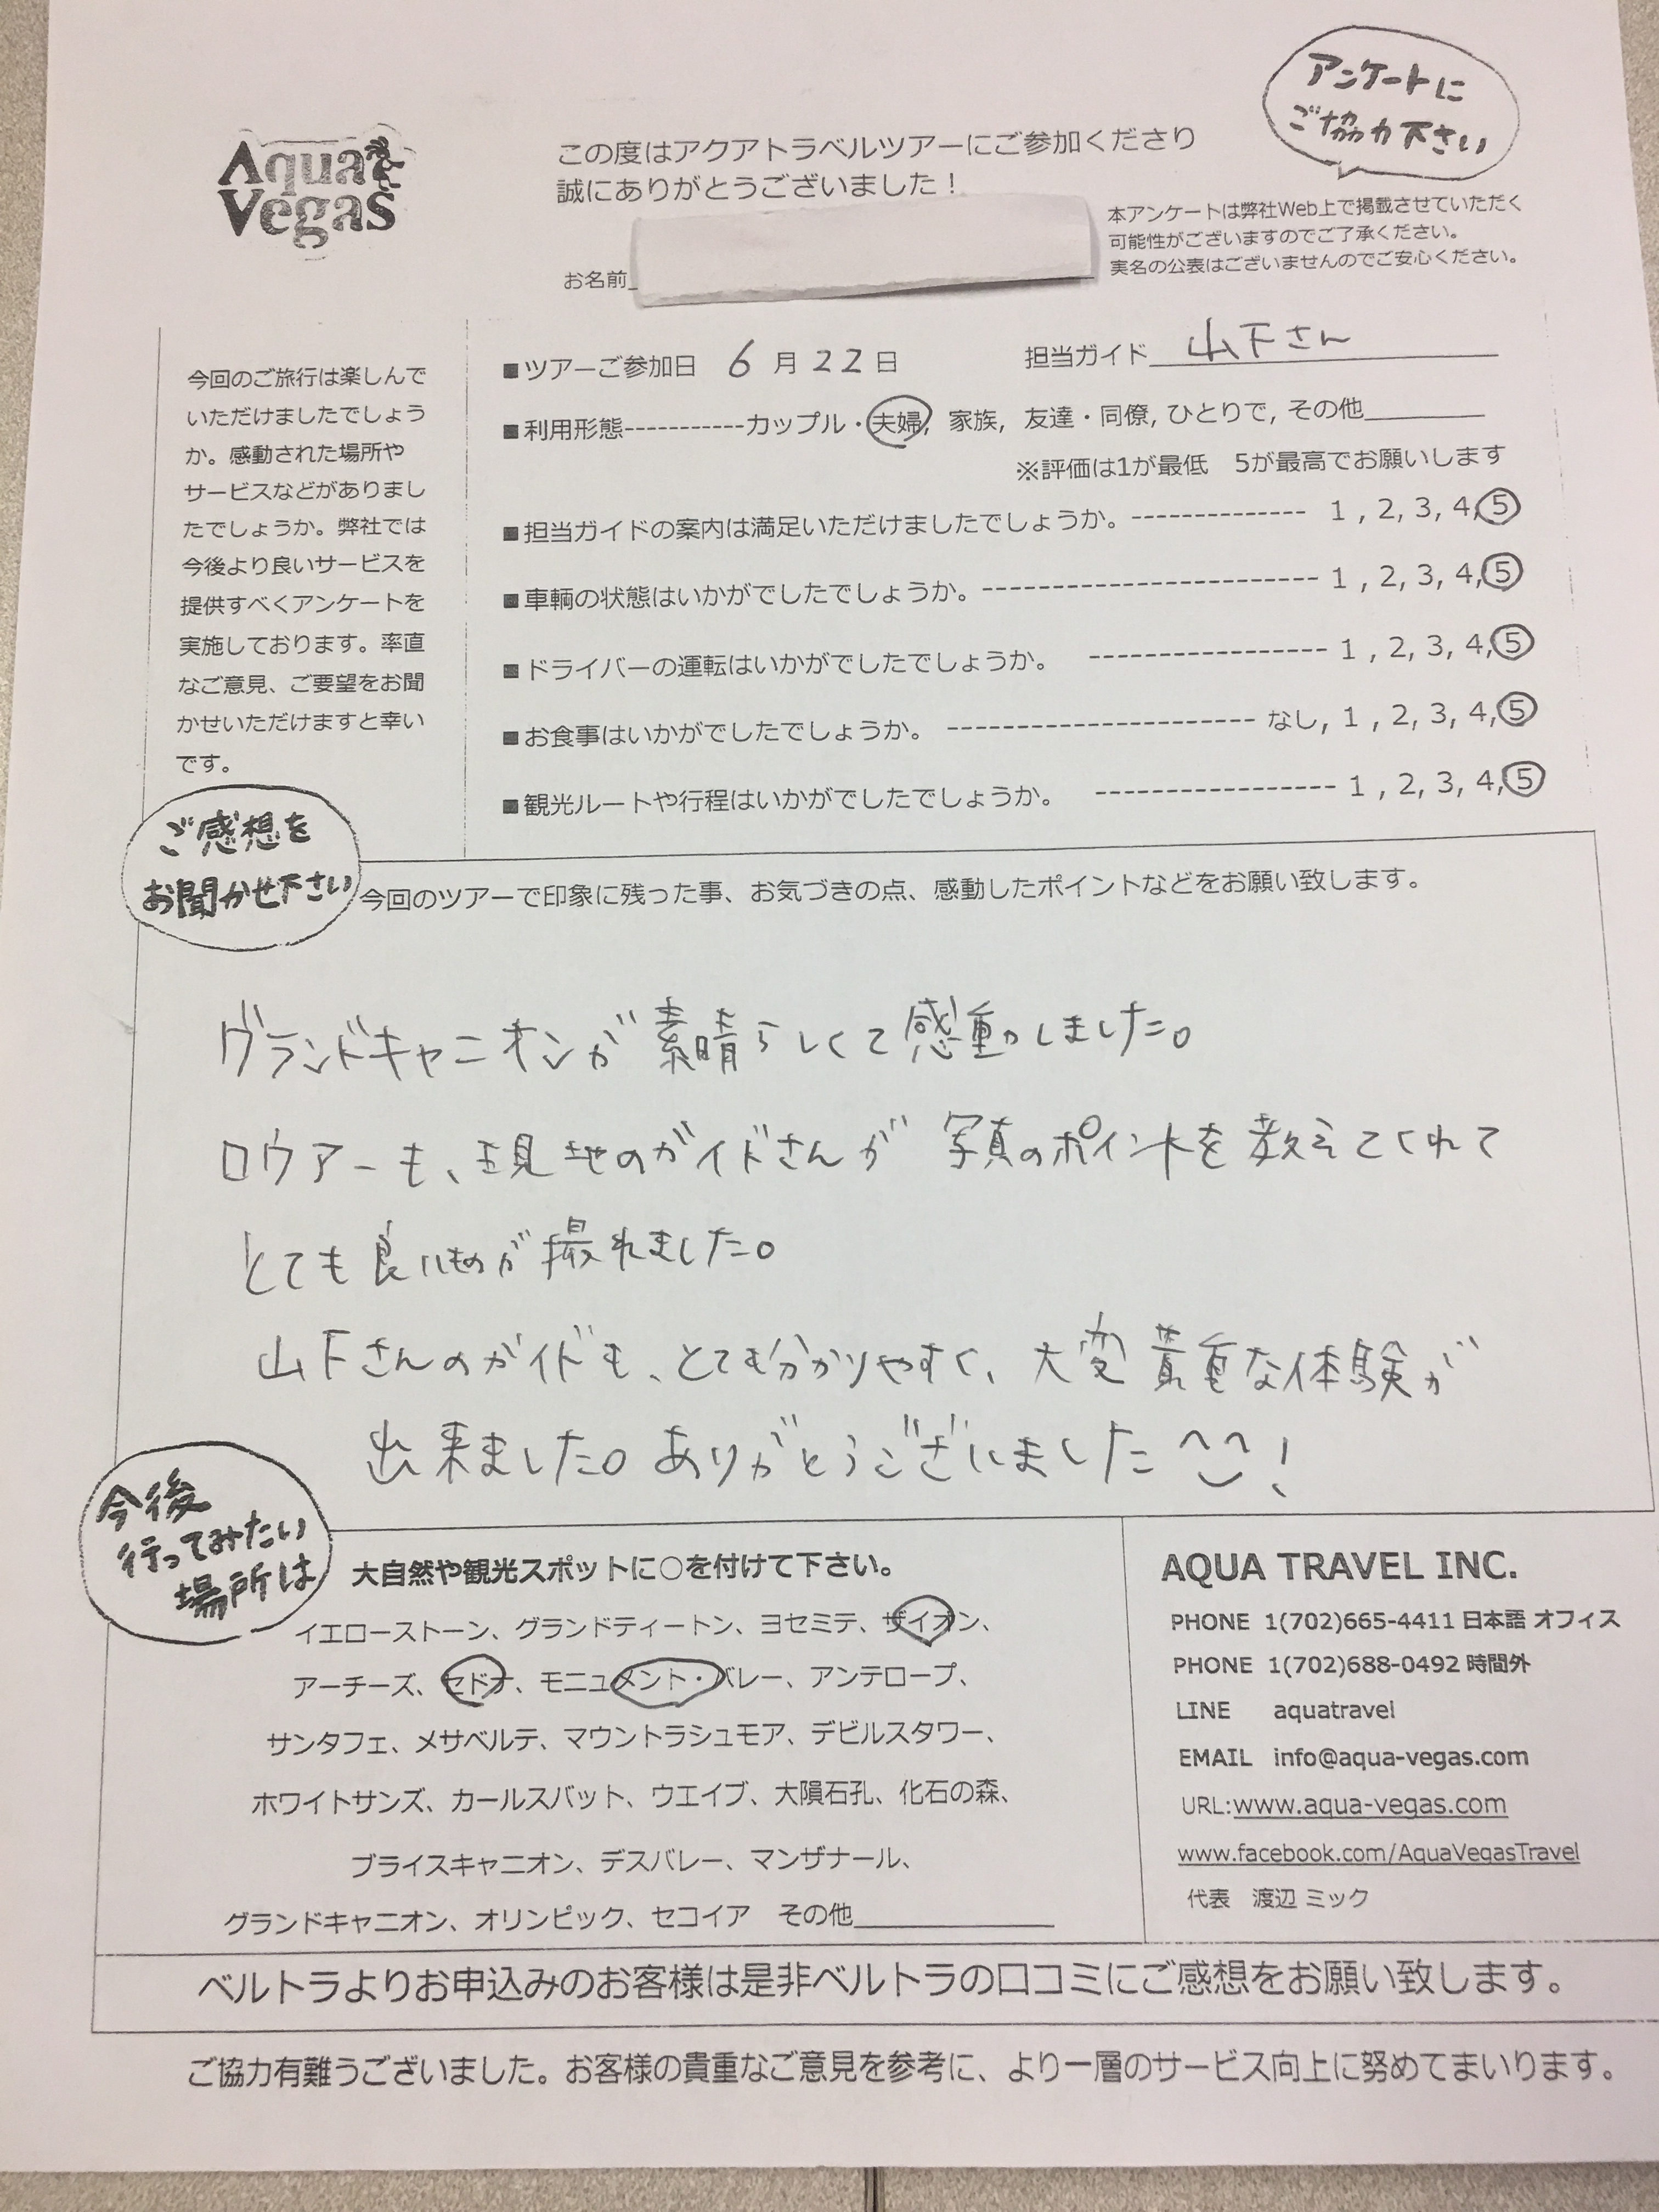 アンケートに
ご協力下さい
Aqua
Vegas
この度はアクアトラベルツアーにご参加くださり
誠にありがとうございました！
お名前
本アンケートは弊社Web上で掲載させていただく
可能性がございますのでご了承ください。
実名の公表はございませんのでご安心ください。
今回のご旅行は楽しんで
いただけましたでしょう
か。感動された場所や
サービスなどがありまし
たでしょうか。弊社では
今後より良いサービスを
提供すべくアンケートを
実施しております。率直
なご意見、ご要望をお聞
かせいただけますと幸い
です。
■ツアーご参加日 6月22日 担当ガイド 山下さん
■利用形態-----------カップル・夫婦, 家族, 友達・同僚, ひとりで, その他________
※評価は1が最低 5が最高でお願いします
■担当ガイドの案内は満足いただけましたでしょうか。-------------- 1 , 2, 3, 4, 5
■車輌の状態はいかがでしたでしょうか。------------------------ 1 , 2, 3, 4, 5
■ドライバーの運転はいかがでしたでしょうか。 ----------------- 1 , 2, 3, 4, 5
■お食事はいかがでしたでしょうか。 ---------------------- なし, 1 , 2, 3, 4, 5
■観光ルートや行程はいかがでしたでしょうか。 ----------------- 1 , 2, 3, 4, 5
ご感想を
お聞かせ下さい
今回のツアーで印象に残った事、お気づきの点、感動したポイントなどをお願い致します。
グランドキャニオンが素晴らしくて感動しました。
ロウアーも、現地のガイドさんが写真のポイントを教えてくれて
とても良いものが撮れました。
山下さんのガイドも、とても分かりやすく、大変貴重な体験が
出来ました。ありがとうございました^^!
今後
行ってみたい
場所は
大自然や観光スポットに○を付けて下さい。
イエローストーン、グランドティートン、ヨセミテ、ザイオン、
アーチーズ、セドナ、モニュメント・バレー、アンテロープ、
サンタフェ、メサベルテ、マウントラシュモア、デビルスタワー、
ホワイトサンズ、カールスバット、ウエイブ、大隕石孔、化石の森、
ブライスキャニオン、デスバレー、マンザナール、
グランドキャニオン、オリンピック、セコイア その他______________
AQUA TRAVEL INC.
PHONE 1(702)665-4411 日本語 オフィス
PHONE 1(702)688-0492 時間外
LINE aquatravel
EMAIL info@aqua-vegas.com
URL:www.aqua-vegas.com
www.facebook.com/AquaVegasTravel
代表 渡辺 ミック
ベルトラよりお申込みのお客様は是非ベルトラの口コミにご感想をお願い致します。
ご協力有難うございました。お客様の貴重なご意見を参考に、より一層のサービス向上に努めてまいります。